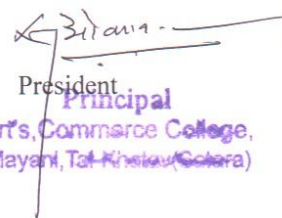 President
Principal
rt's, Commarce College,
Mayani, Tal-Khatav (Satara)